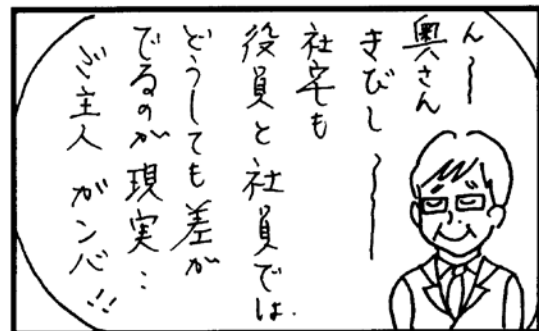 ん〜
奥さん
きびし〜
社宅も
役員と社員では
どうしても差が
でるのが現実…
ご主人 ガンバ!!